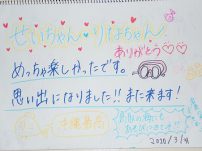 せいちゃん・りなちゃん
ありがとう♡♡
めっちゃ楽しかったです。
思い出になりました!!また来ます!
沖縄最高
2020/3/14